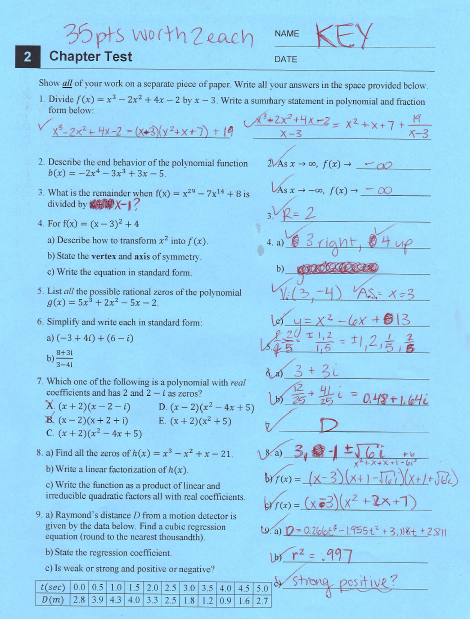 35pts worth 2 each
NAME KEY
2 Chapter Test
DATE
Show all of your work on a separate piece of paper. Write all your answers in the space provided below.
1. Divide f(x) = x³ − 2x² + 4x − 2 by x − 3. Write a summary statement in polynomial and fraction
form below:
x³-2x²+4x-2 = (x-3)(x²+x+7) + 19
x³-2x²+4x-2 / x-3 = x²+x+7 + 19/x-3
2. Describe the end behavior of the polynomial function
b(x) = −2x⁴ − 3x³ + 3x − 5.
2. As x → ∞, f(x) → -∞
As x → −∞, f(x) → -∞
3. What is the remainder when f(x) = x²⁹ − 7x¹⁴ + 8 is
divided by x-1?
3. R=2
4. For f(x) = (x − 3)² + 4
a) Describe how to transform x² into f(x).
4. a) 3 right, 4 up
b) State the vertex and axis of symmetry.
b)
V:(3,-4) AS: x=3
c) Write the equation in standard form.
c) y=x²-6x+13
5. List all the possible rational zeros of the polynomial
g(x) = 5x³ + 2x² − 5x − 2.
5. ±1,2 / 1,5 = ±1,2,1/5,2/5
6. Simplify and write each in standard form:
a) (−3 + 4i) + (6 − i)
a) 3+3i
b) 8+3i / 3−4i
b) 12/25 + 41/25 i = 0.48+1.64i
7. Which one of the following is a polynomial with real
coefficients and has 2 and 2 − i as zeros?
D
A. (x + 2)(x − 2 − i) D. (x − 2)(x² − 4x + 5)
B. (x − 2)(x + 2 + i) E. (x + 2)(x² + 5)
C. (x + 2)(x² − 4x + 5)
8. a) Find all the zeros of h(x) = x³ − x² + x − 21.
8 a) 3, -1 ± √6 i
b) Write a linear factorization of h(x).
b) f(x) = (x-3)(x+1-√6i)(x+1+√6i)
c) Write the function as a product of linear and
irreducible quadratic factors all with real coefficients.
c) f(x) = (x-3)(x²+2x+7)
9. a) Raymond's distance D from a motion detector is
given by the data below. Find a cubic regression
equation (round to the nearest thousandth).
b) State the regression coefficient.
b) r² = .997
c) Is weak or strong and positive or negative?
c) strong positive?
t(sec) 0.0 0.5 1.0 1.5 2.0 2.5 3.0 3.5 4.0 4.5 5.0
D(m) 2.8 3.9 4.3 4.0 3.3 2.5 1.8 1.2 0.9 1.6 2.7